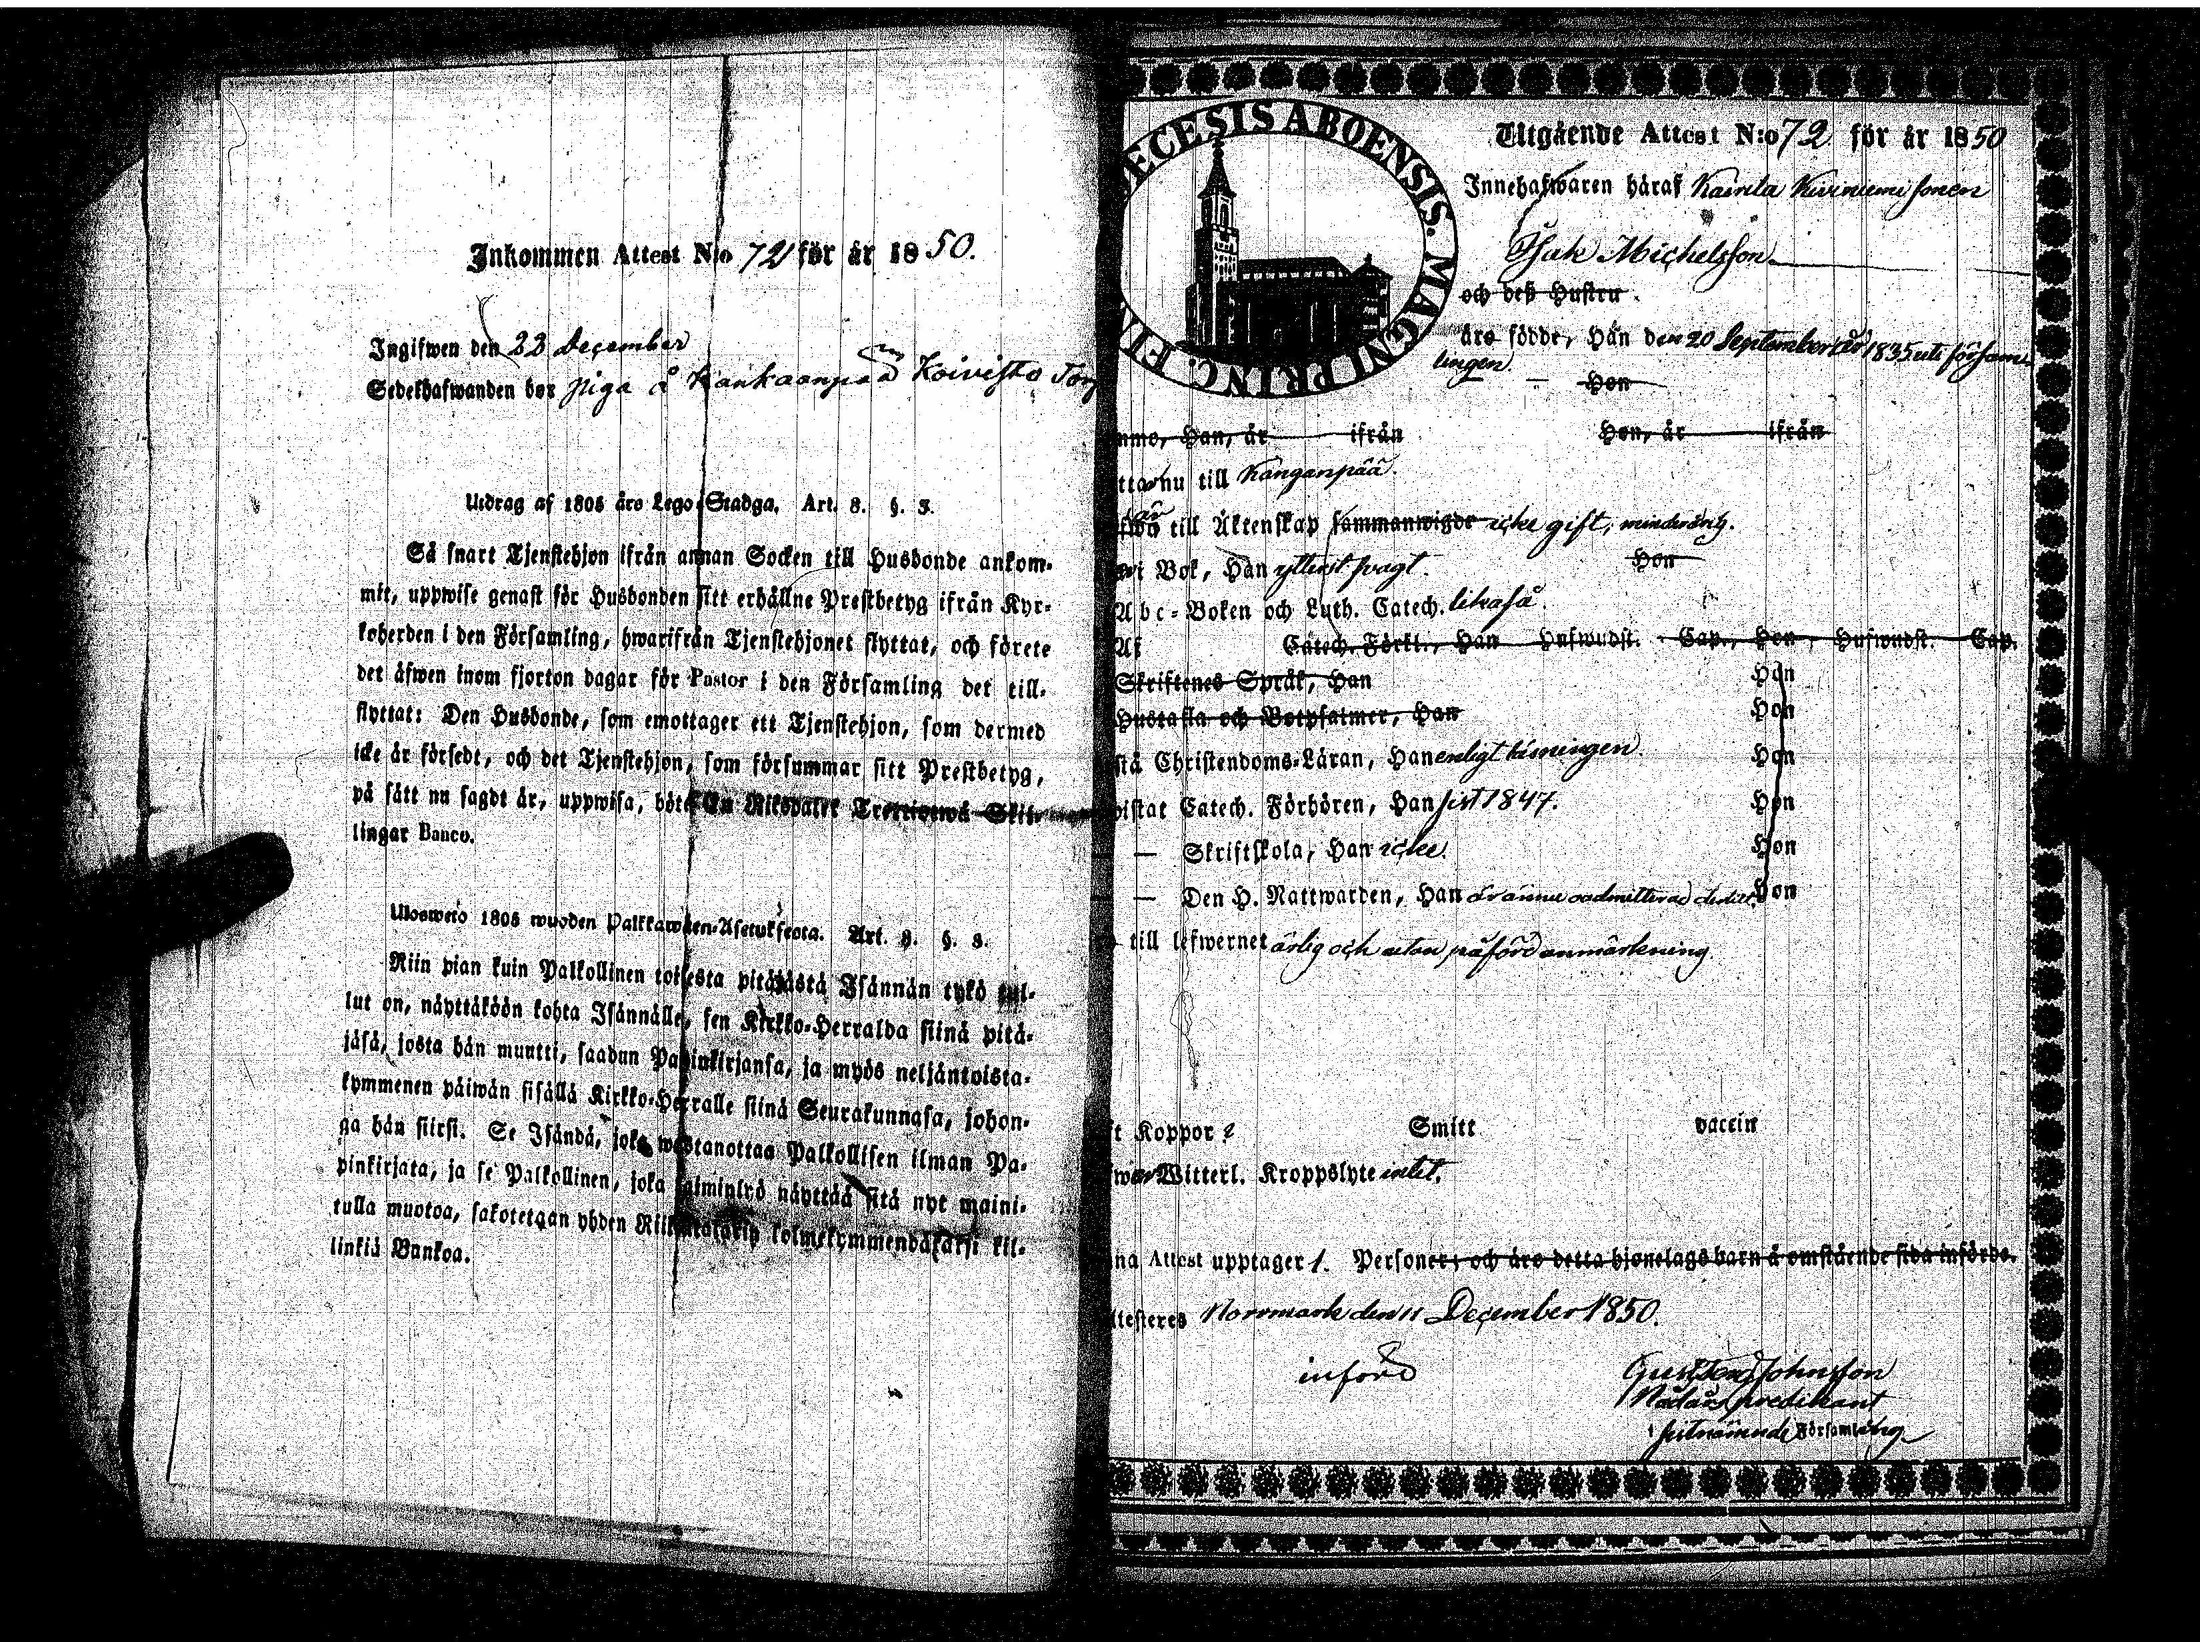 Inkommen Attest N:o 72 för år 1850.
Ingifwen den 23 December
Sedelhafwanden bor piga å Kankaanpää Koivisto Torp
Utdrag af 1805 års Lego-Stadga. Art. 8. §. 3.
Så snart Tjenstehjon ifrån annan Socken till Husbonde ankom-
mit, uppwise genast för Husbonden sitt erhållne Prestbetyg ifrån Kyr-
koherden i den Församling, hwarifrån Tjenstehjonet flyttat, och förete
det äfwen inom fjorton dagar för Pastor i den Församling det till-
flyttat: Den Husbonde, som emottager ett Tjenstehjon, som dermed
icke är försedt, och det Tjenstehjon, som försummar sitt Prestbetyg,
på sätt nu sagdt är, uppwisa, böte En Riksdaler Trettiotwå Skil-
lingar Banco.
Ulosweto 1805 wuoden Palkkawäen-Asetuksesta. Art. 8. §. 3.
Niin pian kuin Palkollinen toisesta pitäjästä Isännän tykö tul-
lut on, näyttäköön kohta Isännälle, sen Kirkko-Herralda siinä pitä-
jäsä, josta hän muutti, saadun Papinkirjansa, ja myös neljäntoista-
kymmenen päiwän sisällä Kirkko-Herralle siinä Seurakunnasa, johon-
ga hän siirsi. Se Isändä, joka wastanottaa Palkollisen ilman Pa-
pinkirjata, ja se Palkollinen, joka laiminlyö näyttää sitä nyt maini-
tulla muotoa, sakotetaan yhden Riksitalarin kolmekymmendäkaksi kil-
linkiä Bankoa.
ECESIS ABOENSIS. MAGNI PRINC. FIN
Utgående Attest N:o 72 för år 1850
Innehafwaren häraf Kairila Kivniemi sonen
Isak Michelsson
och des Hustru
äro födde, Han den 20 September år 1835 uti försam-
lingen.
Hon
mmo, Han, år ifrån Hon, år ifrån
ttar nu till Kanganpää.
är
fwa till Äktenskap sammanwigde icke gift, minderårig.
wi Bok, Han ytterst svagt. Hon
Abc-Boken och Luth. Catech. likaså.
Af Catech. Förkl., Han Hufwudst. Cap., Hon, Hufwudst. Cap.
Skriftenes Språk, Han Hon
Hustafla och Botpsalmer, Han Hon
stå Christendoms-Läran, Han enligt kunningen Hon
wistat Catech. Förhören, Han sist 1847. Hon
— — Skriftskola, Han icke. Hon
— — Den H. Nattwarden, Han är ännu oadmitterad dertill. Hon
till lefwernet ärlig och utan påförd anmärkning.
ft Koppor? Smitt vaccin
wer Witterl. Kroppslyte intet.
na Attest upptager 1. Personer; och äro detta hjonelags barn å omstående sida införde.
ttesteres Norrmark den 11 December 1850.
införd
Gustten Johnsson
Nådårs predikant
i sistnämnde Församling